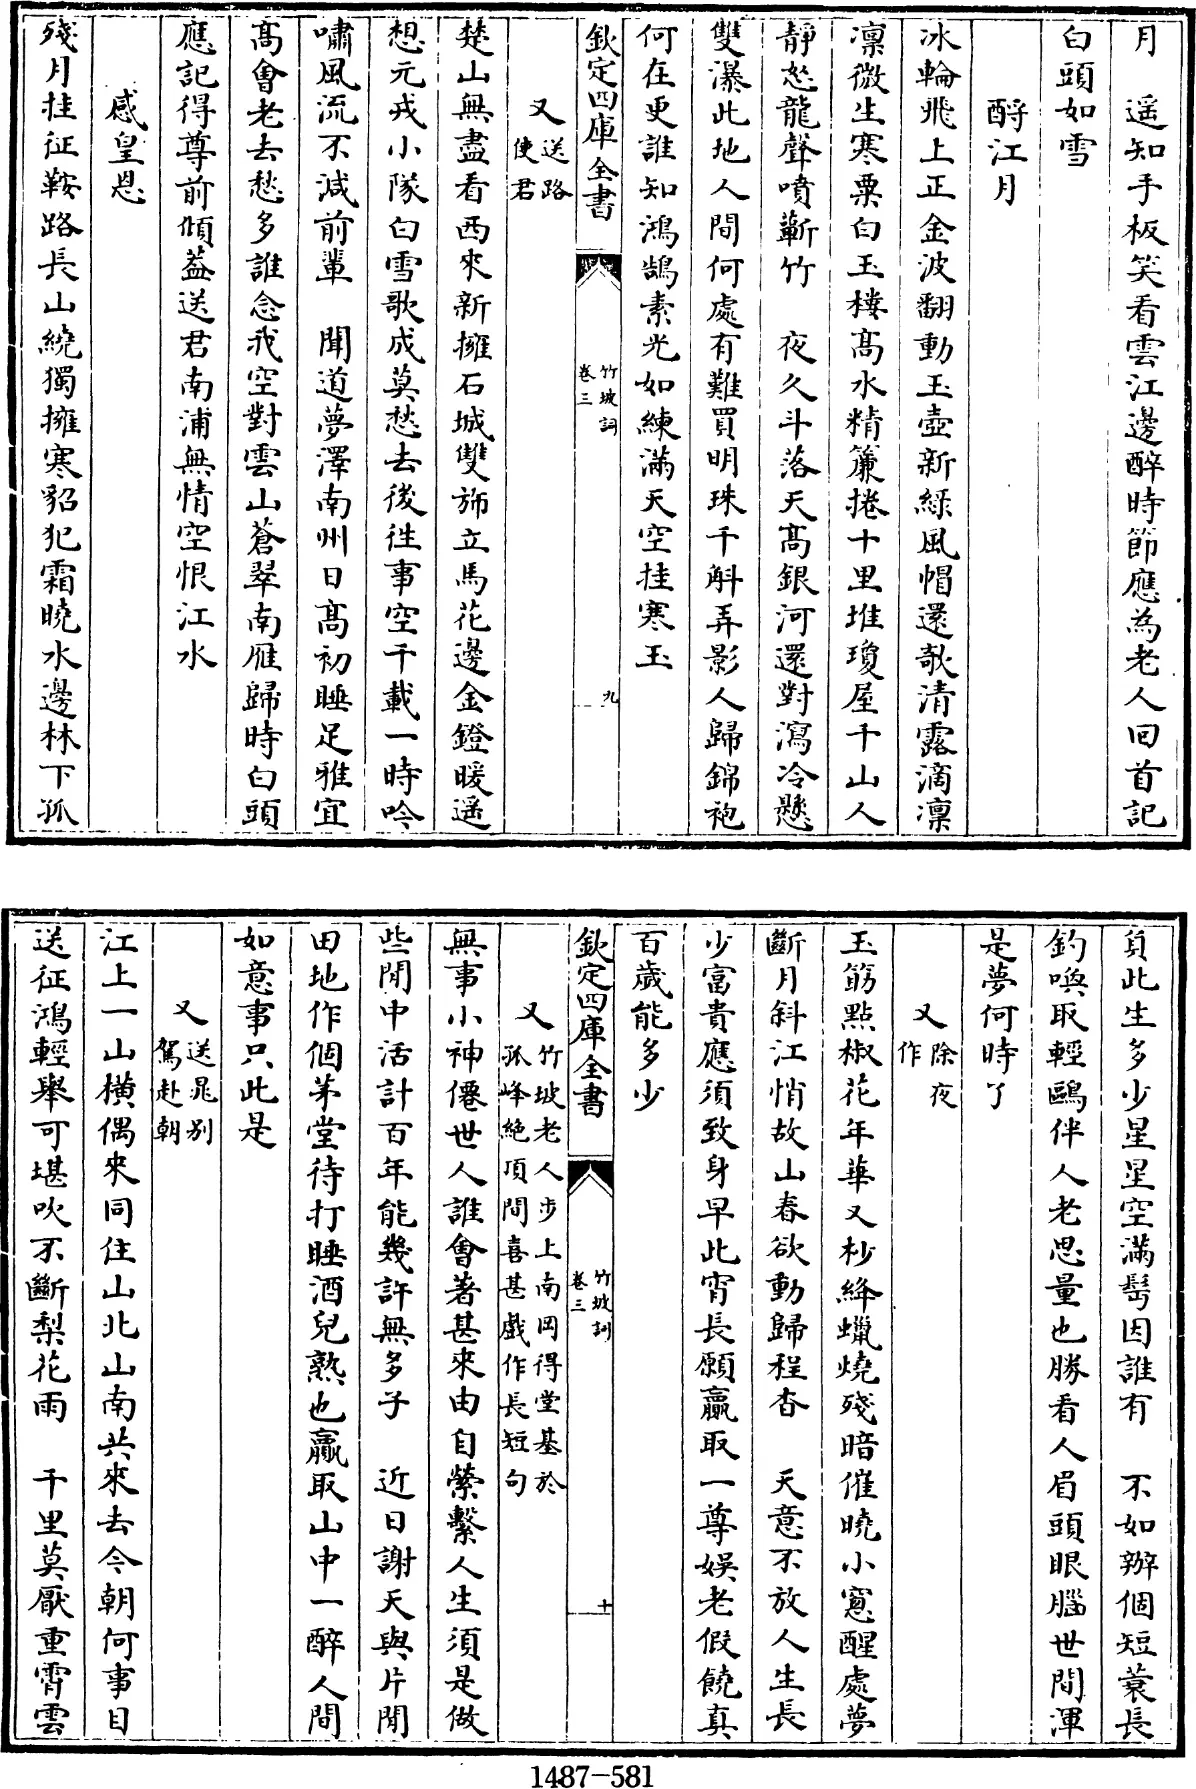 月　遥知手板笑看雲江邊醉時節應為老人回首記
白頭如雪
酹江月
冰輪飛上正金波翻動玉壺新緑風帽還欹清露滴凛
凛微生寒粟白玉樓髙水精簾捲十里堆瓊屋千山人
靜怒龍聲噴蘄竹　夜久斗落天髙銀河還對瀉冷懸
雙瀑此地人間何處有難買明珠千斛弄影人歸錦袍
何在更誰知鴻鵠素光如練滿天空挂寒玉
欽定四庫全書
竹坡詞
卷三
九
又送路
使君
楚山無盡看西來新擁石城雙斾立馬花邊金鐙暖遥
想元戎小隊白雪歌成莫愁去後往事空千載一時吟
嘯風流不減前輩　聞道夢澤南州日髙初睡足雅宜
髙會老去愁多誰念我空對雲山蒼翠南雁歸時白頭
應記得尊前傾葢送君南浦無情空恨江水
感皇恩
殘月挂征鞍路長山繞獨擁寒貂犯霜曉水邊林下孤
負此生多少星星空滿髩因誰有　不如辦個短蓑長
釣喚取輕鷗伴人老思量也勝看人眉頭眼腦世間渾
是夢何時了
又除夜
作
玉筯點椒花年華又杪絳蠟燒殘暗催曉小窻醒處夢
斷月斜江悄故山春欲動歸程杳　天意不放人生長
少富貴應須致身早此宵長願贏取一尊娱老假饒真
百歲能多少
欽定四庫全書
竹坡詞
卷三
十
又竹坡老人步上南岡得堂基於
孤峰絶頂間喜甚戲作長短句
無事小神僊世人誰會著甚來由自縈繫人生須是做
些閒中活計百年能幾許無多子　近日謝天與片閒
田地作個茅堂待打睡酒兒熟也贏取山中一醉人間
如意事只此是
又送晁别
駕赴朝
江上一山横偶來同住山北山南共來去今朝何事目
送征鴻輕舉可堪吹不斷梨花雨　千里莫厭重霄雲
1487-581